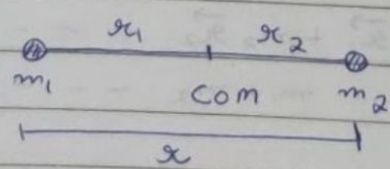 r₁ r₂
m₁ COM m₂
r